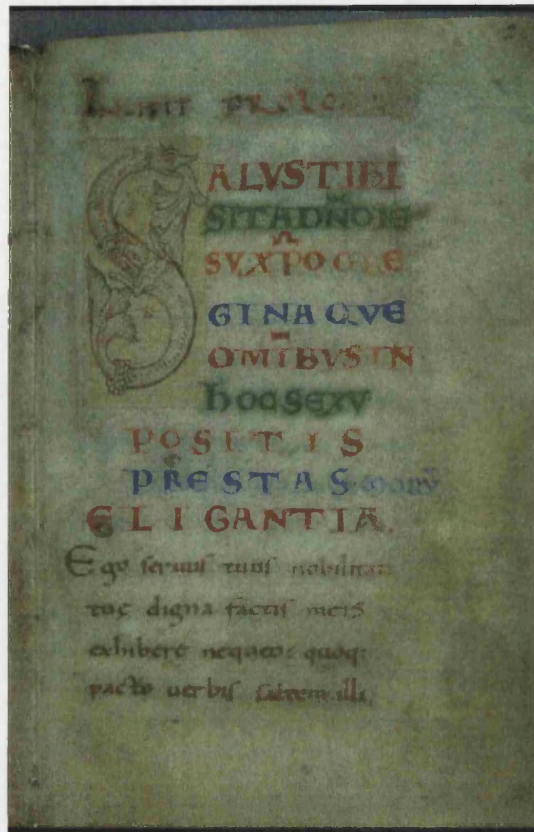 Incipit prolo
SALVSTIBI
SITADÑOIE
SVXPOORE
GINAQVE
OMIBVSIN
hOCSEXV
POSITIS
PRESTAS morū
ELIGANTIA.
Ego seruus tuus nobilitati
tuę digna factis meis
exhibere nequeo: quoq;
pacto uerbis saltem illi